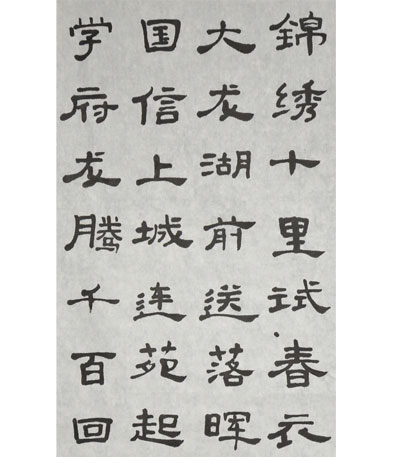 錦绣十里试春衣
大龙湖前送落晖
国信上城连苑起
学府龙腾千百回